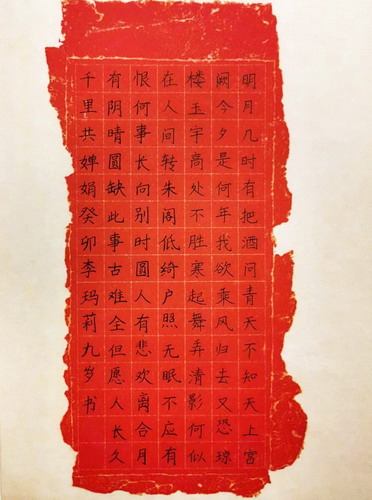 明月几时有把酒问青天不知天上宫
阙今夕是何年我欲乘风归去又恐琼
楼玉宇高处不胜寒起舞弄清影何似
在人间转朱阁低绮户照无眠不应有
恨何事长向别时圆人有悲欢离合月
有阴晴圆缺此事古难全但愿人长久
千里共婵娟癸卯李玛莉九岁书